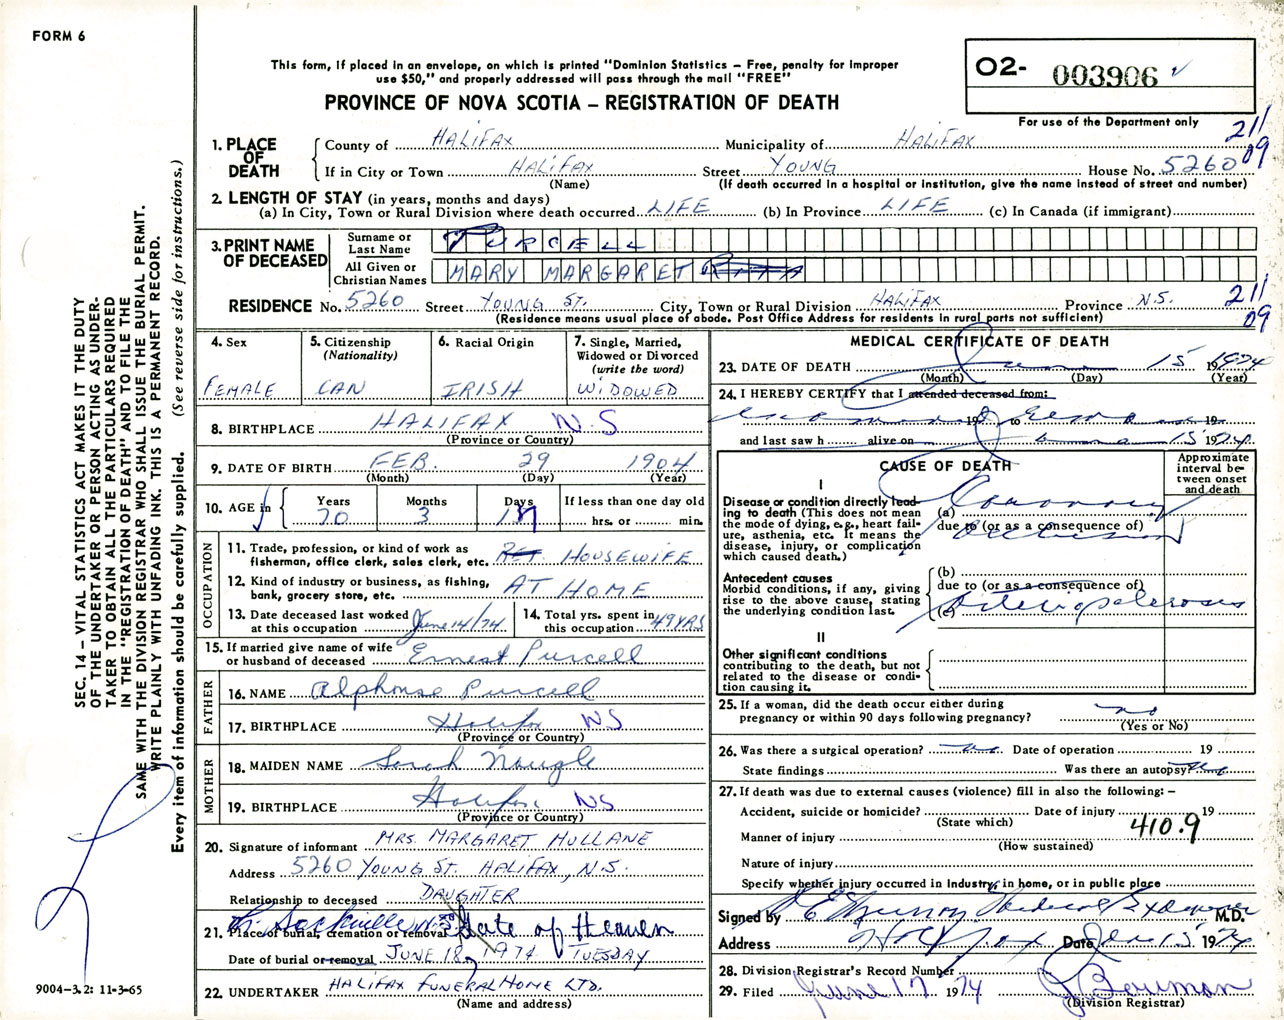 FORM 6
This form, if placed in an envelope, on which is printed "Dominion Statistics – Free, penalty for improper
use $50," and properly addressed will pass through the mail "FREE"
PROVINCE OF NOVA SCOTIA – REGISTRATION OF DEATH
02- 003906
For use of the Department only
211
09
1. PLACE OF DEATH
County of HALIFAX Municipality of HALIFAX
If in City or Town HALIFAX Street YOUNG House No. 5260
(Name) (If death occurred in a hospital or institution, give the name instead of street and number)
2. LENGTH OF STAY (in years, months and days)
(a) In City, Town or Rural Division where death occurred LIFE (b) In Province LIFE (c) In Canada (if immigrant)
3. PRINT NAME OF DECEASED
Surname or Last Name PURCELL
All Given or Christian Names MARY MARGARET RITA
RESIDENCE No. 5260 Street YOUNG ST. City, Town or Rural Division HALIFAX Province N.S.
(Residence means usual place of abode. Post Office Address for residents in rural parts not sufficient)
211
09
SEC. 14 – VITAL STATISTICS ACT MAKES IT THE DUTY
OF THE UNDERTAKER OR PERSON ACTING AS UNDER-
TAKER TO OBTAIN ALL THE PARTICULARS REQUIRED
IN THE "REGISTRATION OF DEATH" AND TO FILE THE
SAME WITH THE DIVISION REGISTRAR WHO SHALL ISSUE THE BURIAL PERMIT.
WRITE PLAINLY WITH UNFADING INK. THIS IS A PERMANENT RECORD.
Every item of information should be carefully supplied. (See reverse side for instructions.)
4. Sex
FEMALE
5. Citizenship
(Nationality)
CAN
6. Racial Origin
IRISH
7. Single, Married,
Widowed or Divorced
(write the word)
WIDOWED
8. BIRTHPLACE HALIFAX N.S
(Province or Country)
9. DATE OF BIRTH FEB. 29 1904
(Month) (Day) (Year)
10. AGE in
Years Months Days If less than one day old
70 3 17 hrs. or min.
OCCUPATION
11. Trade, profession, or kind of work as
fisherman, office clerk, sales clerk, etc. RET. HOUSEWIFE
12. Kind of industry or business, as fishing,
bank, grocery store, etc. AT HOME
13. Date deceased last worked
at this occupation June 14/74
14. Total yrs. spent in
this occupation 49 YRS
15. If married give name of wife
or husband of deceased Ernest Purcell
FATHER
16. NAME Alphonse Purcell
17. BIRTHPLACE Halifax NS
(Province or Country)
MOTHER
18. MAIDEN NAME Sarah Naugle
19. BIRTHPLACE Halifax NS
(Province or Country)
20. Signature of informant MRS. MARGARET MULLANE
Address 5260 YOUNG ST. HALIFAX, N.S.
Relationship to deceased DAUGHTER
21. Place of burial, cremation or removal Sackville N.S. Gate of Heaven
Date of burial or removal JUNE 18, 1974 TUESDAY
22. UNDERTAKER HALIFAX FUNERAL HOME LTD.
(Name and address)
9004-3.2: 11-3-65
MEDICAL CERTIFICATE OF DEATH
23. DATE OF DEATH June 15 1974
(Month) (Day) (Year)
24. I HEREBY CERTIFY that I attended deceased from:
19 to 19
and last saw h alive on 15 1974
CAUSE OF DEATH
Approximate
interval be-
tween onset
and death
I
Disease or condition directly lead-
ing to death (This does not mean
the mode of dying, e.g., heart fail-
ure, asthenia, etc. It means the
disease, injury, or complication
which caused death.)
(a) Coronary
due to (or as a consequence of)
Occlusion
Antecedent causes
Morbid conditions, if any, giving
rise to the above cause, stating
the underlying condition last.
(b)
due to (or as a consequence of)
(c) Arteriosclerosis
II
Other significant conditions
contributing to the death, but not
related to the disease or condi-
tion causing it.
25. If a woman, did the death occur either during
pregnancy or within 90 days following pregnancy? no
(Yes or No)
26. Was there a surgical operation? no. Date of operation 19
State findings Was there an autopsy?
27. If death was due to external causes (violence) fill in also the following: –
Accident, suicide or homicide? Date of injury 19
(State which)
410.9
Manner of injury
(How sustained)
Nature of injury
Specify whether injury occurred in Industry, in home, or in public place
Signed by Medical Examiner M.D.
Address Halifax Date June 15 1974
28. Division Registrar's Record Number
29. Filed June 17 1974 J Bowman
(Division Registrar)